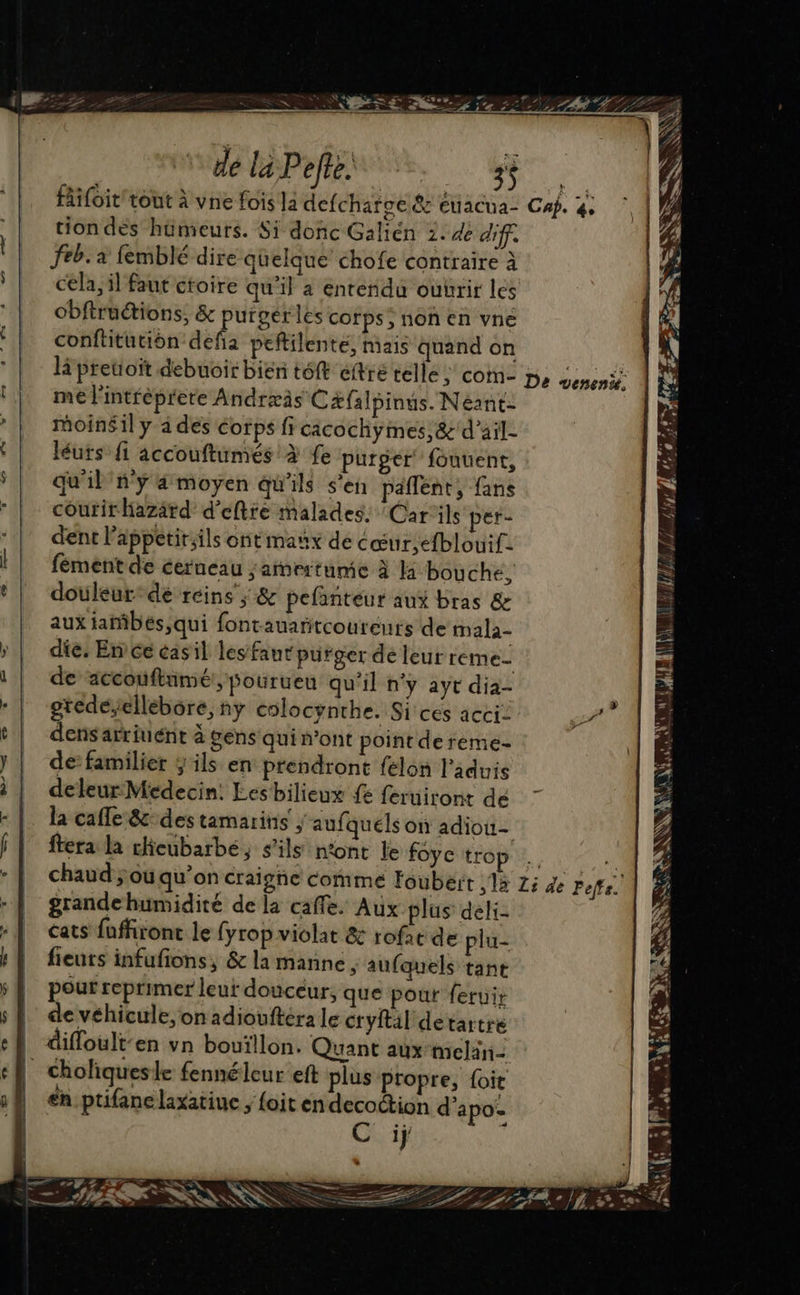 de la Peste. 35
faisoit tout à vne fois la descharge & euacua- Cap. 4.
tion des humeurs. Si donc Galien 2. de diff.
feb. a semblé dire quelque chose contraire à
cela, il faut croire qu'il a entendu ouurir les
obstructions, & purger les corps, non en vne
constitution desia pestilente, mais quand on
la preuoit debuoir bien tost estre telle, com- De venenis.
me l'intreprete Andræas Cæsalpinus. Neant-
moins il y a des corps si cacochymes, & d'ail-
leurs si accoustumés à se purger souuent,
qu'il n'y a moyen qu'ils s'en passent, sans
courir hazard d'estre malades. Car ils per-
dent l'appetit, ils ont maux de cœur, esblouis-
sement de cerueau, amertume à la bouche,
douleur de reins, & pesanteur aux bras &
aux iambes, qui sont auantcoureurs de mala-
die. En ce cas il les faut purger de leur reme-
de accoustumé, pourueu qu'il n'y ayt dia-
grede, ellebore, ny colocynthe. Si ces acci-
dens arriuent à gens qui n'ont point de reme-
de familier, ils en prendront selon l'aduis
de leur Medecin. Les bilieux se seruiront de
la casse & des tamarins, ausquels on adiou-
stera la rheubarbe, s'ils n'ont le foye trop
chaud, ou qu'on craigne comme Ioubert, la Li de Peste.
grande humidité de la casse. Aux plus deli-
cats suffiront le syrop violat & rosat de plu-
sieurs infusions, & la manne, ausquels tant
pour reprimer leur douceur, que pour seruir
de vehicule, on adioustera le crystal de tartre
dissoult en vn bouillon. Quant aux melan-
choliques le senné leur est plus propre, soit
en ptisane laxatiue, soit en decoction d'apo-
C ij